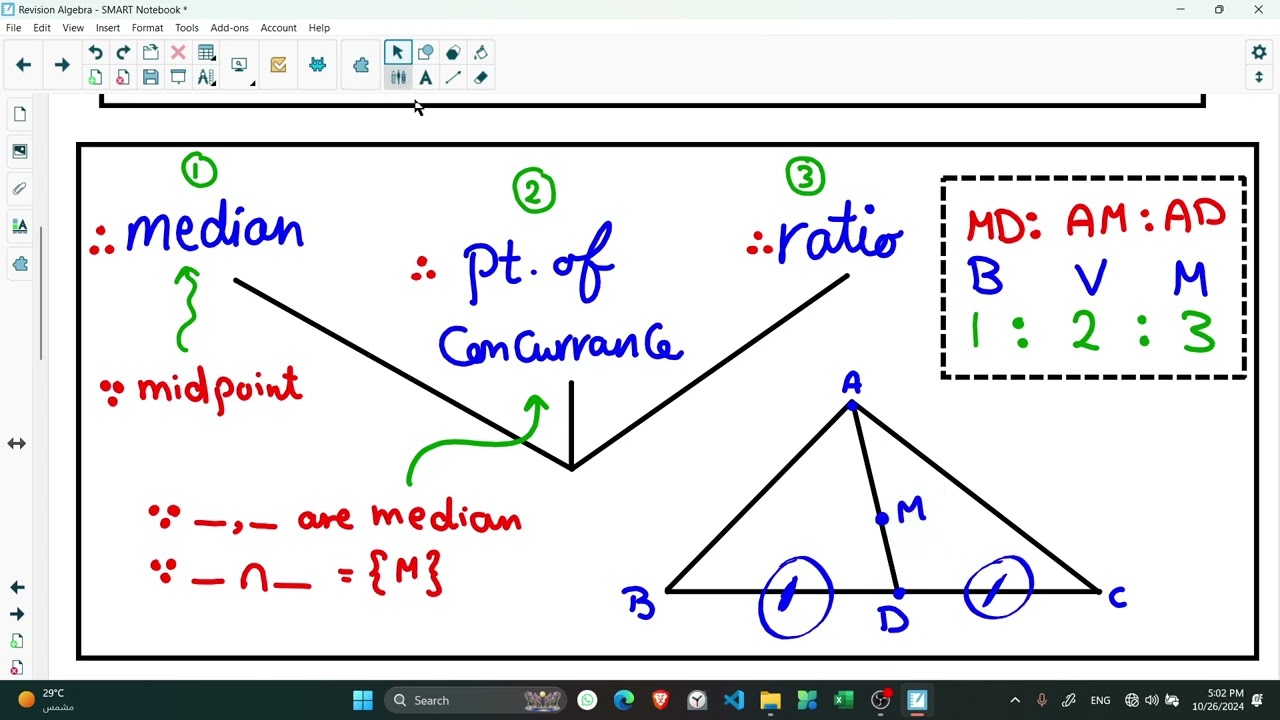 Revision Algebra - SMART Notebook *
File Edit View Insert Format Tools Add-ons Account Help
① ② ③
∴ median
∴ pt. of
Concurrance
∴ ratio
MD: AM : AD
B V M
1 : 2 : 3
∵ midpoint
∵ _,_ are median
∵ _ ∩ _ = {M}
A
M
B
D
C
29°C
مشمس
Search
ENG
5:02 PM
10/26/2024